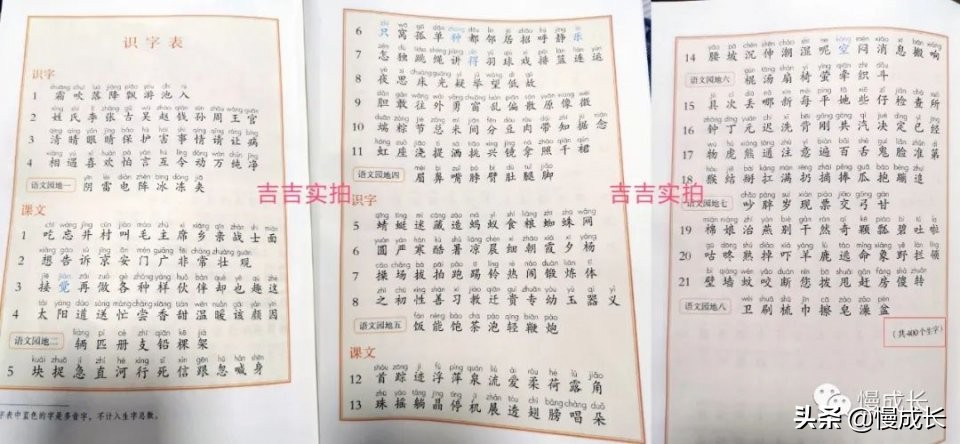 识字表
识字
1 霜 吹 落 降 飘 游 池 入
2 姓 氏 李 张 古 吴 赵 钱 孙 周 王 官
3 清 晴 眼 睛 保 护 害 事 情 请 让 病
4 相 遇 喜 欢 怕 言 互 令 动 万 纯 净
语文园地一 阴 雷 电 阵 冰 冻 夹
课文
1 吃 忘 井 村 叫 毛 主 席 乡 亲 战 士 面
2 想 告 诉 京 安 门 广 非 常 壮 观
3 接 觉 再 做 各 种 样 伙 伴 却 也 趣 这
4 太 阳 道 送 忙 尝 香 甜 温 暖 该 颜 因
语文园地二 辆 匹 册 支 铅 棵 架
5 块 捉 急 直 河 行 死 信 跟 忽 喊 身
字表中蓝色的字是多音字，不计入生字总数。
6 只 窝 孤 单 种 都 邻 居 招 呼 静 乐
7 怎 独 跳 绳 讲 得 羽 球 戏 排 篮 连 运
8 夜 思 床 光 疑 举 望 低 故
9 胆 敢 往 外 勇 窗 乱 偏 散 原 像 微
10 端 粽 节 总 米 间 分 豆 肉 带 知 据 念
11 虹 座 浇 提 洒 挑 兴 镜 拿 照 千 裙
语文园地四 眉 鼻 嘴 脖 臂 肚 腿 脚
识字
5 蜻 蜓 迷 藏 造 蚂 蚁 食 粮 蜘 蛛 网
6 圆 严 寒 酷 暑 凉 晨 细 朝 霞 夕 杨
7 操 场 拔 拍 跑 踢 铃 热 闹 锻 炼 体
8 之 初 性 善 习 教 迁 贵 专 幼 玉 器 义
语文园地五 饭 能 饱 茶 泡 轻 鞭 炮
课文
12 首 踪 迹 浮 萍 泉 流 爱 柔 荷 露 角
13 珠 摇 躺 晶 停 机 展 透 翅 膀 唱 朵
14 腰 坡 沉 伸 潮 湿 呢 空 闷 消 息 搬 响
语文园地六 棍 汤 扇 椅 萤 牵 织 斗
15 具 次 丢 哪 新 每 平 她 些 仔 检 查 所
16 钟 丁 元 迟 洗 背 刚 共 汽 决 定 已 经
17 物 虎 熊 通 注 意 遍 百 舌 鬼 脸 准 第
18 猴 结 掰 扛 满 扔 摘 捧 瓜 抱 蹦 追
语文园地七 吵 胖 岁 现 票 交 弓 甘
19 棉 娘 治 燕 别 干 然 奇 颗 瓢 碧 吐 啦
20 咕 咚 熟 掉 吓 羊 鹿 逃 命 象 野 拦 领
21 壁 墙 蚊 咬 断 您 拨 甩 赶 房 傻 转
语文园地八 卫 刷 梳 巾 擦 皂 澡 盆
（共400个生字）
吉吉实拍
吉吉实拍
慢成长
头条 @慢成长